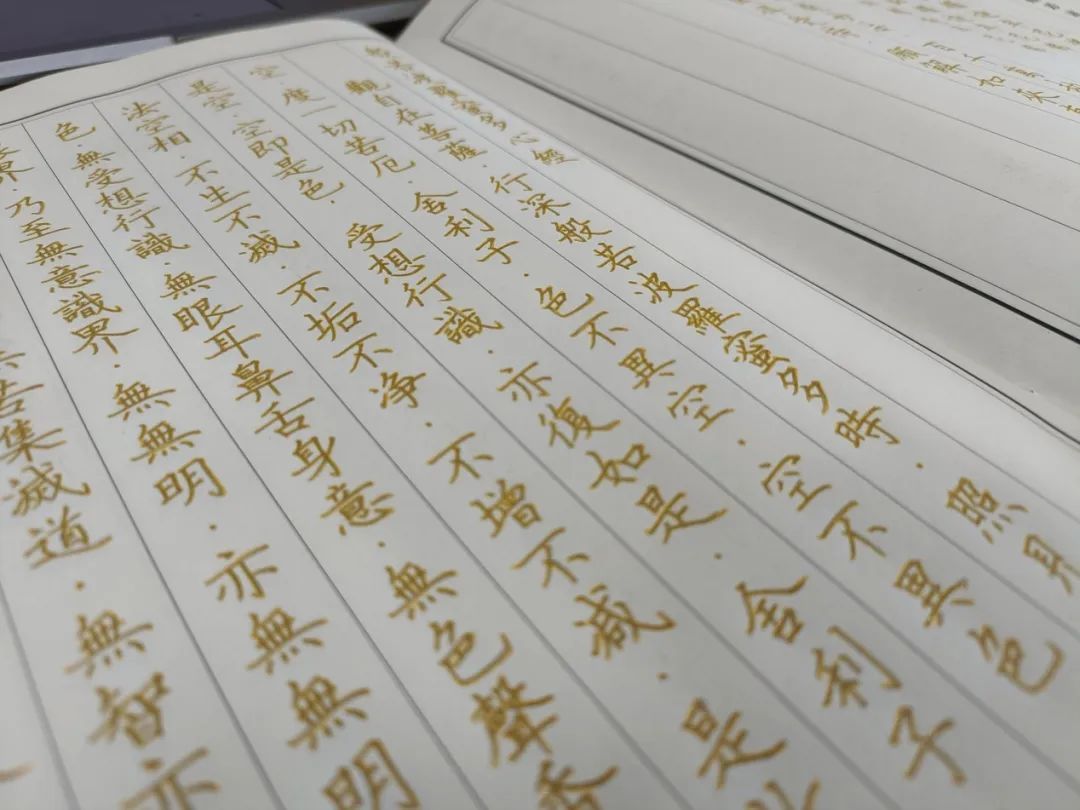 般若波羅蜜多心經
觀自在菩薩·行深般若波羅蜜多時·照見
空度一切苦厄·舍利子·色不異空·空不異色
是空·空即是色·受想行識·亦復如是·舍利子
法空相·不生不滅·不垢不净·不增不減·是
色·無受想行識·無眼耳鼻舌身意·無色聲香
界·乃至無意識界·無無明·亦無無明
苦集滅道·無智亦